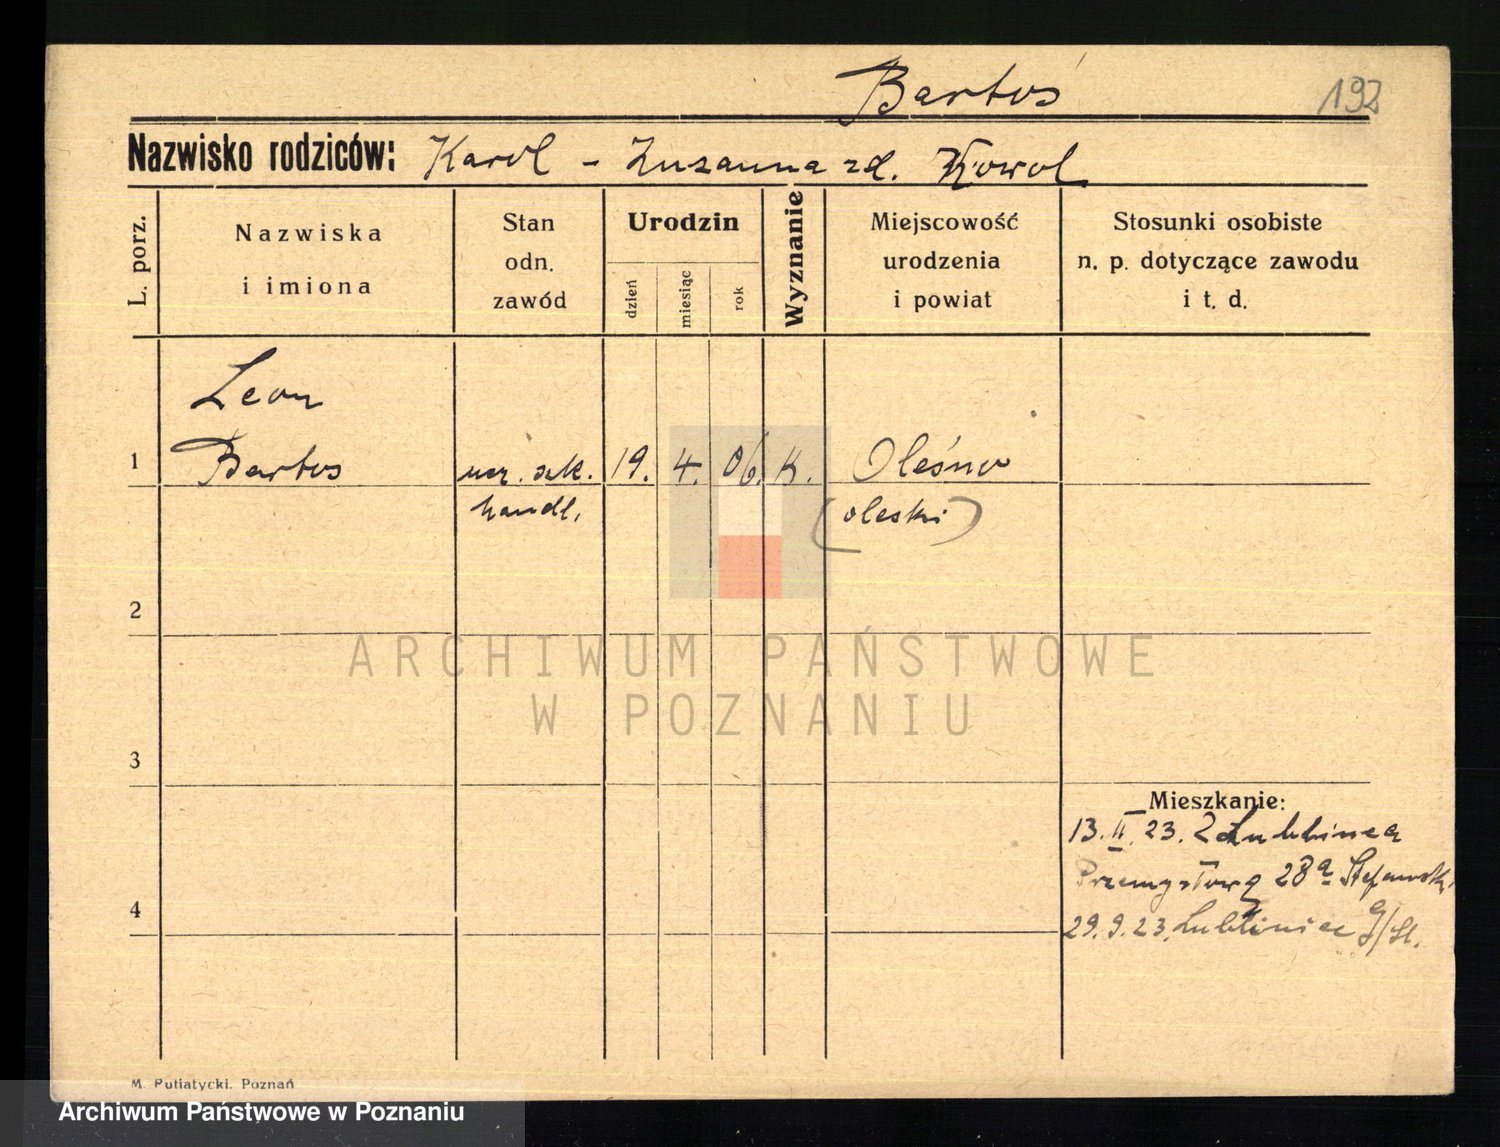 Bartoś
192
Nazwisko rodziców: Karol - Zuzanna zd. Kowol
L. porz.
Nazwiska
i imiona
Stan
odn.
zawód
Urodzin
dzień
miesiąc
rok
Wyznanie
Miejscowość
urodzenia
i powiat
Stosunki osobiste
n. p. dotyczące zawodu
i t. d.
Leon
1 Bartos ucz. szk. 19. 4. 06. K. Oleśno
handl. (oleski)
2
ARCHIWUM PAŃSTWOWE
W POZNANIU
3
Mieszkanie:
13. II. 23. Z Lublinca
Przemysłowa 28a Stefanski
4
29. 9. 23. Lubliniec G/Śl.
M. Putiatycki. Poznań
Archiwum Państwowe w Poznaniu